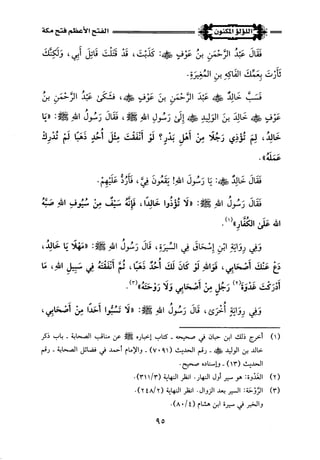 اللؤلؤ المكنون
الفتح الأعظم فتح مكة
فَقَالَ عَبْدُ الرَّحْمَنِ بنُ عَوْفٍ ﷺ: كَذَبْتَ، قَدْ قَتَلْتُ قَاتِلَ أَبِي، وَلَكِنَّكَ
ثَأَرْتَ بِعَمِّكَ الفَاكِهِ بنِ المُغِيرَةِ.
فَسَبَّ خَالِدٌ عَبْدَ الرَّحْمَنِ بنَ عَوْفٍ، فَشَكَى عَبْدُ الرَّحْمَنِ بنُ
عَوْفٍ خَالِدَ بنَ الوَلِيدِ إِلَى رَسُولِ اللهِ ﷺ، فَقَالَ رَسُولُ اللهِ ﷺ: «يَا
خَالِدُ، لِمَ تُؤْذِي رَجُلًا مِنْ أَهْلِ بَدْرٍ؟ لَوْ أَنْفَقْتَ مِثْلَ أُحُدٍ ذَهَبًا لَمْ تُدْرِكْ
عَمَلَهُ».
فَقَالَ خَالِدٌ: يَا رَسُولَ اللهِ! يَقَعُونَ فِيَّ، فَأَرُدُّ عَلَيْهِمْ.
فَقَالَ رَسُولُ اللهِ ﷺ: «لَا تُؤْذُوا خَالِدًا، فَإِنَّهُ سَيْفٌ مِنْ سُيُوفِ اللهِ صَبَّهُ
اللهُ عَلَى الكُفَّارِ»(١).
وَفِي رِوَايَةِ ابْنِ إِسْحَاقَ فِي السِّيرَةِ، قَالَ رَسُولُ اللهِ ﷺ: «مَهْلًا يَا خَالِدُ،
دَعْ عَنْكَ أَصْحَابِي، فَوَاللهِ لَوْ كَانَ لَكَ أُحُدٌ ذَهَبًا، ثُمَّ أَنْفَقْتَهُ فِي سَبِيلِ اللهِ، مَا
أَدْرَكْتَ غَدْوَةَ(٢) رَجُلٍ مِنْ أَصْحَابِي وَلَا رَوْحَتَهُ»(٣).
وَفِي رِوَايَةٍ أُخْرَى، قَالَ رَسُولُ اللهِ ﷺ: «لَا تَسُبُّوا أَحَدًا مِنْ أَصْحَابِي،
(١) أخرج ذلك ابن حبان في صحيحه ـ كتاب إخباره ﷺ عن مناقب الصحابة ـ باب ذكر
خالد بن الوليد ـ رقم الحديث (٧٠٩١) ـ والإمام أحمد في فضائل الصحابة ـ رقم
الحديث (١٣) ـ وإسناده صحيح.
(٢) الغَدْوَة: هو سير أول النهار. انظر النهاية (٣١١/٣).
(٣) الرَّوْحَة: السير بعد الزوال. انظر النهاية (٢٤٨/٢).
والخبر في سيرة ابن هشام (٨٠/٤).
٩٥